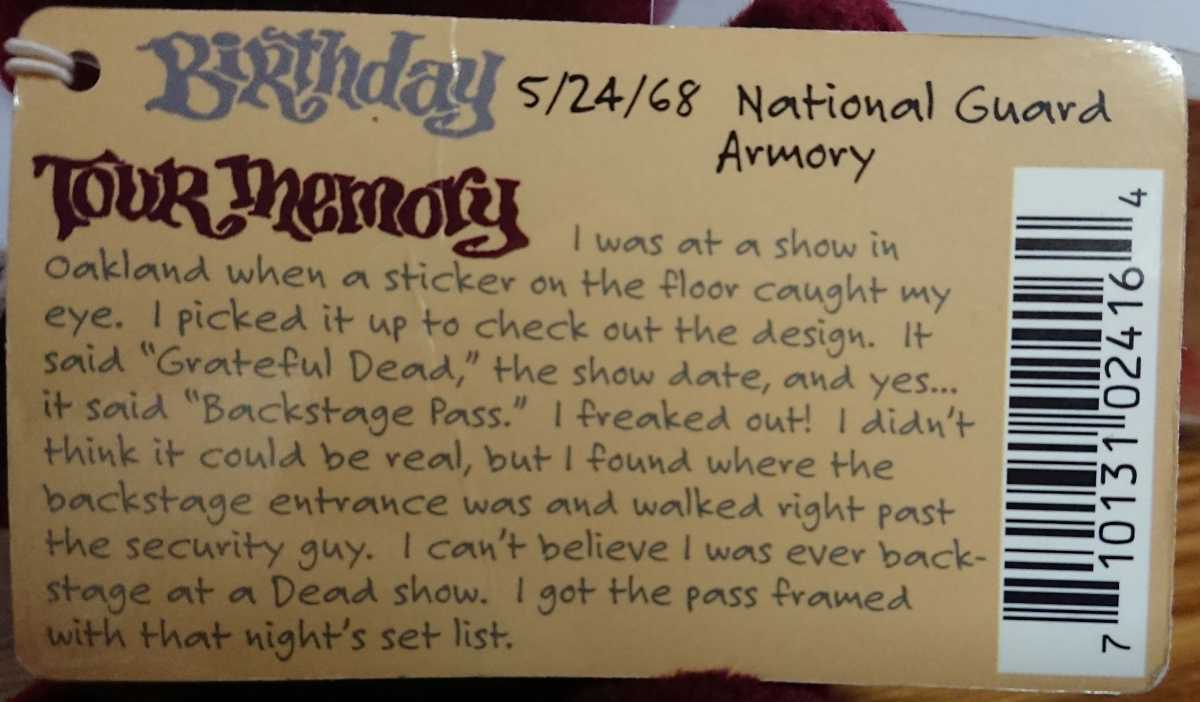 Birthday 5/24/68 National Guard
Armory
Tour Memory I was at a show in
Oakland when a sticker on the floor caught my
eye. I picked it up to check out the design. It
said “Grateful Dead,” the show date, and yes...
it said “Backstage Pass.” I freaked out! I didn't
think it could be real, but I found where the
backstage entrance was and walked right past
the security guy. I can't believe I was ever back-
stage at a Dead show. I got the pass framed
with that night's set list.
7 10131 02416 4